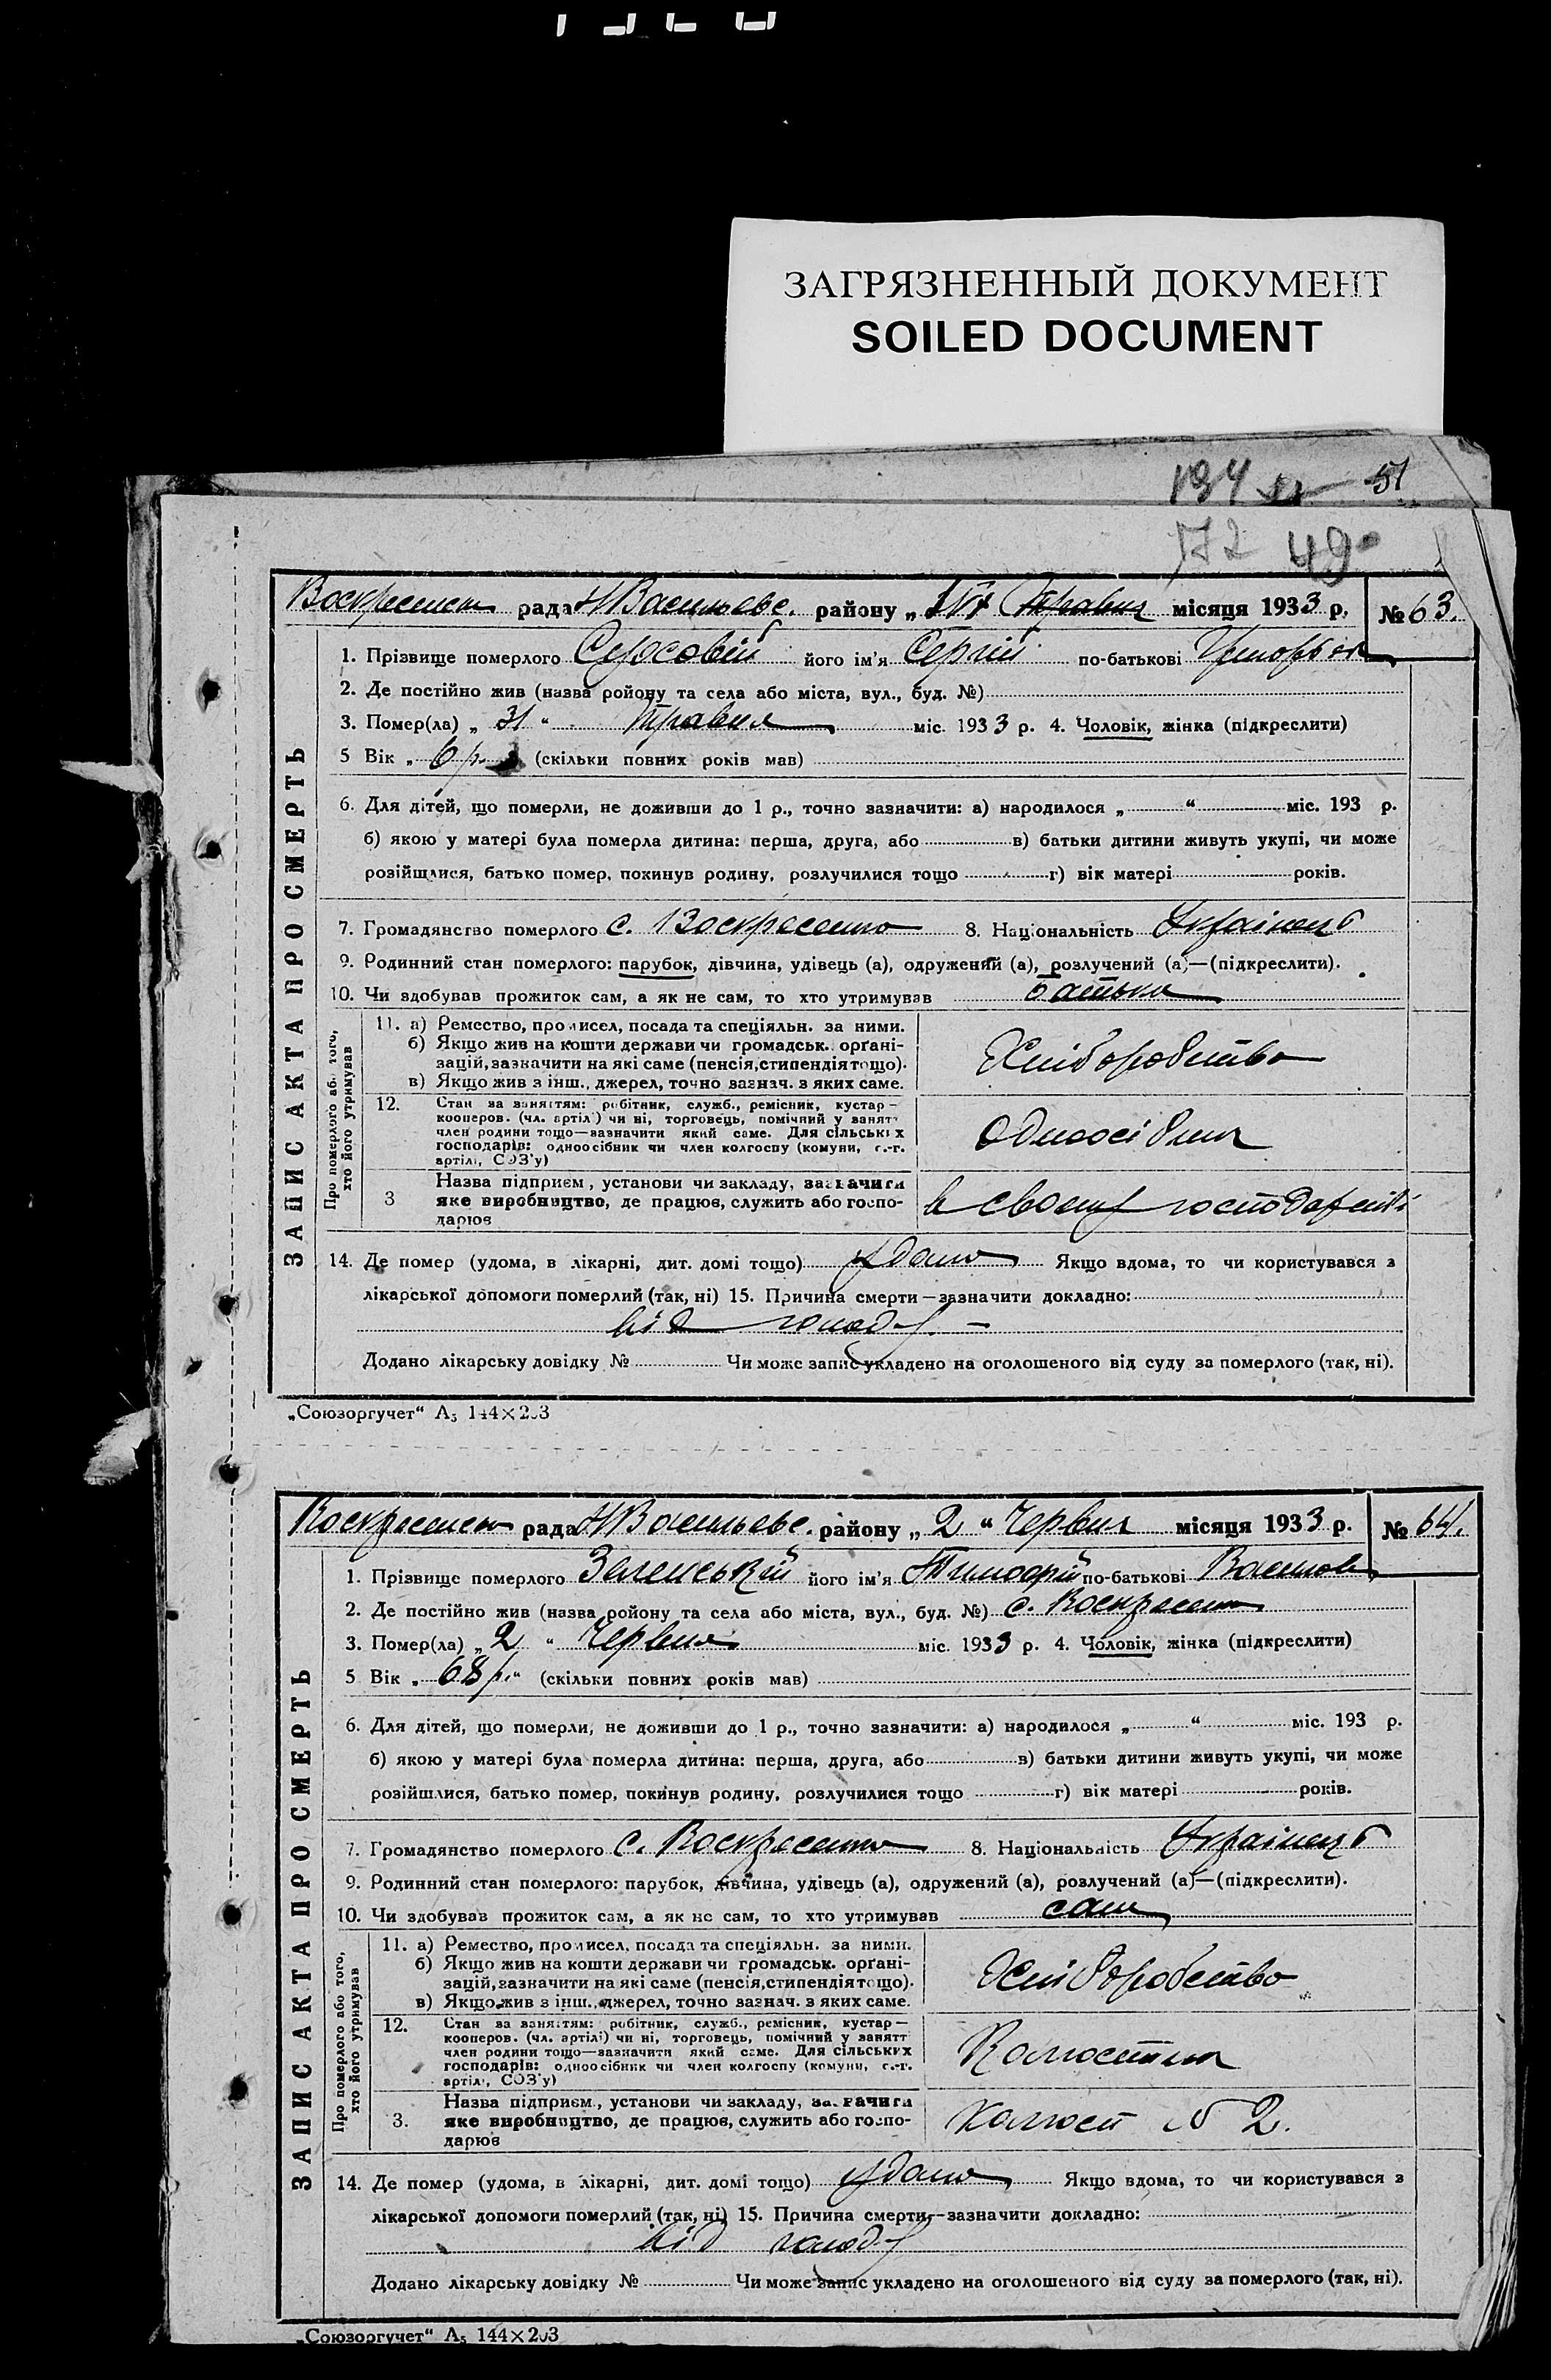 ЗАГРЯЗНЕННЫЙ ДОКУМЕНТ
SOILED DOCUMENT
194 51
172 49
Воскресенськ рада НВасильевс. району „ травня місяця 1933 р. № 63.
1. Прізвище померлого його ім'я Сергій по-батькові
2. Де постійно жив (назва ройону та села або міста, вул., буд. №)
3. Помер(ла) „ 31 “ травня міс. 1933 р. 4. Чоловік, жінка (підкреслити)
5 Вік „ 6 р. (скільки повних років мав)
6. Для дітей, що померли, не доживши до 1 р., точно зазначити: а) народилося „ “ міс. 193 р.
б) якою у матері була померла дитина: перша, друга, або в) батьки дитини живуть укупі, чи може
розійшлися, батько помер, покинув родину, розлучилися тощо г) вік матері років.
7. Громадянство померлого с. Воскресенка 8. Національність Українець
9. Родинний стан померлого: парубок, дівчина, удівець (а), одружений (а), розлучений (а)—(підкреслити).
10. Чи здобував прожиток сам, а як не сам, то хто утримував батько
ЗАПИС АКТА ПРО СМЕРТЬ
Про померлого аб. того, хто його утримував
11. а) Ремество, промисел, посада та спеціяльн. за ними.
б) Якщо жив на кошти держави чи громадськ. орґані-
зацій, зазначити на які саме (пенсія, стипендія тощо).
в) Якщо жив з інш., джерел, точно зазнач. з яких саме.
Хліборобство
12. Стан за заняттям: робітник, служб., ремісник, кустар—
кооперов. (чл. артілі) чи ні, торговець, помічний у занятт
член родини тощо—зазначити який саме. Для сільських
господарів: одноосібник чи член колгоспу (комуни, с.-г.
артілі, СОЗ'у)
Одноосібник
3 Назва підприєм., установи чи закладу, зазначити
яке виробництво, де працює, служить або госпо-
дарює
в своему господарстві
14. Де помер (удома, в лікарні, дит. домі тощо) удома Якщо вдома, то чи користувався з
лікарської допомоги померлий (так, ні) 15. Причина смерти—зазначити докладно:
від голоду —
Додано лікарську довідку № Чи може запис укладено на оголошеного від суду за померлого (так, ні).
„Союзоргучет“ А5 144×203
Воскресенськ рада НВасильевс. району „ 2 “ Червня місяця 1933 р. № 64.
1. Прізвище померлого Зеленський його ім'я Тимофій по-батькові
2. Де постійно жив (назва ройону та села або міста, вул., буд. №) с. Воскресенк
3. Помер(ла) „ 2 “ Червня міс. 1933 р. 4. Чоловік, жінка (підкреслити)
5 Вік „ 68 р. “ (скільки повних років мав)
6. Для дітей, що померли, не доживши до 1 р., точно зазначити: а) народилося „ “ міс. 193 р.
б) якою у матері була померла дитина: перша, друга, або в) батьки дитини живуть укупі, чи може
розійшлися, батько помер, покинув родину, розлучилися тощо г) вік матері років.
7. Громадянство померлого с. Воскресенка 8. Національність Українець
9. Родинний стан померлого: парубок, дівчина, удівець (а), одружений (а), розлучений (а)—(підкреслити).
10. Чи здобував прожиток сам, а як не сам, то хто утримував сам
ЗАПИС АКТА ПРО СМЕРТЬ
Про померлого або того, хто його утримував
11. а) Ремество, промисел, посада та спеціяльн. за ними.
б) Якщо жив на кошти держави чи громадськ. орґані-
зацій, зазначити на які саме (пенсія, стипендія тощо).
в) Якщо жив з інш., джерел, точно зазнач. з яких саме.
Хліборобство
12. Стан за заняттям: робітник, служб., ремісник, кустар—
кооперов. (чл. артілі) чи ні, торговець, помічний у занятт
член родини тощо—зазначити який саме. Для сільських
господарів: одноосібник чи член колгоспу (комуни, с.-г.
артілі, СОЗ'у)
Колгоспник
3. Назва підприєм., установи чи закладу, зазначити
яке виробництво, де працює, служить або госпо-
дарює
Колгосп № 2.
14. Де помер (удома, в лікарні, дит. домі тощо) удома Якщо вдома, то чи користувався з
лікарської допомоги померлий (так, ні) 15. Причина смерти—зазначити докладно:
від голоду
Додано лікарську довідку № Чи може запис укладено на оголошеного від суду за померлого (так, ні).
„Союзоргучет“ А5 144×203